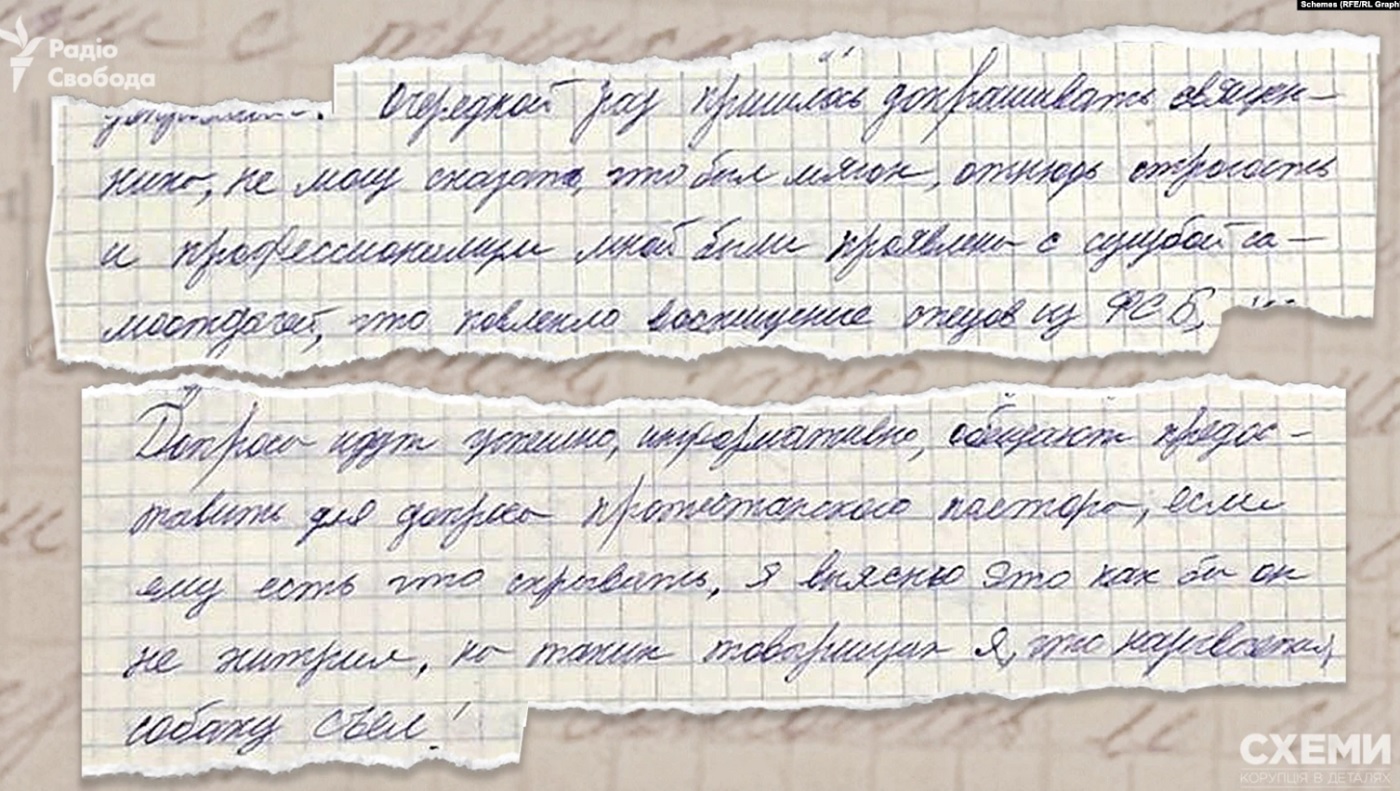 Schemes (RFE/RL Graph
Радіо
Свобода
Очередной раз пришлось допрашивать священ-
ника, не могу сказать, что был мягок, отнюдь строгость
и профессионализм мной были проявлены с сугубой са-
моотдачей, что повлекло восхищение отцов из ФСБ,
Допросы идут успешно, информативно, обещают предос-
тавить для допроса протестанского пастора, если
ему есть что скрывать, я выясню это как бы он
не хитрил, на таких товарищах я, что называется,
собаку съел!
СХЕМИ
КОРУПЦІЯ В ДЕТАЛЯХ